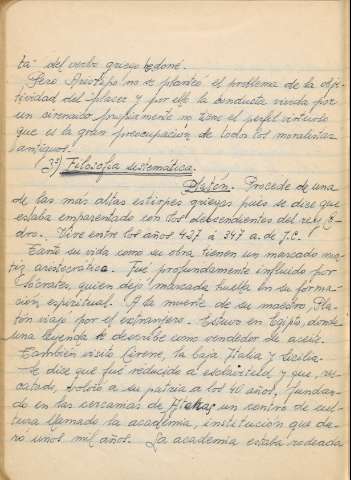 ta del verbo griego hedoné.
Pero Arístipo no se planteó el problema de la obje-
tividad del placer y por ello la conducta vivida por
un cirenaico propiamente no tiene el perfil virtuoso
que es la gran preocupación de todos los moralistas
antiguos.
3º) Filosofía sistemática.
Platón. Procede de una
de las mas altas estirpes griegas pues se dice que
estaba emparentado con los descendientes del rey Co-
dro. Vive entre los años 427 á 347 a. de J.C.
Tanto su vida como su obra tienen un marcado ma-
tiz aristocrático. Fué profundamente influido por
Sócrates, quien dejó marcada huella en su forma-
ción espiritual. A la muerte de su maestro, Pla-
tón viajó por el extranjero. Estuvo en Egipto, donde
una leyenda le describe como vendedor de aceite.
También visitó Cirene, la baja Italia y Sicilia.
Se dice que fué reducido a esclavitud y que, res-
catado, volvió a su patria a los 40 años, fundan-
do en las cercanías de Atenas un centro de cul-
tura llamado la academia, institución que du-
ró unos mil años. La academia estaba rodeada